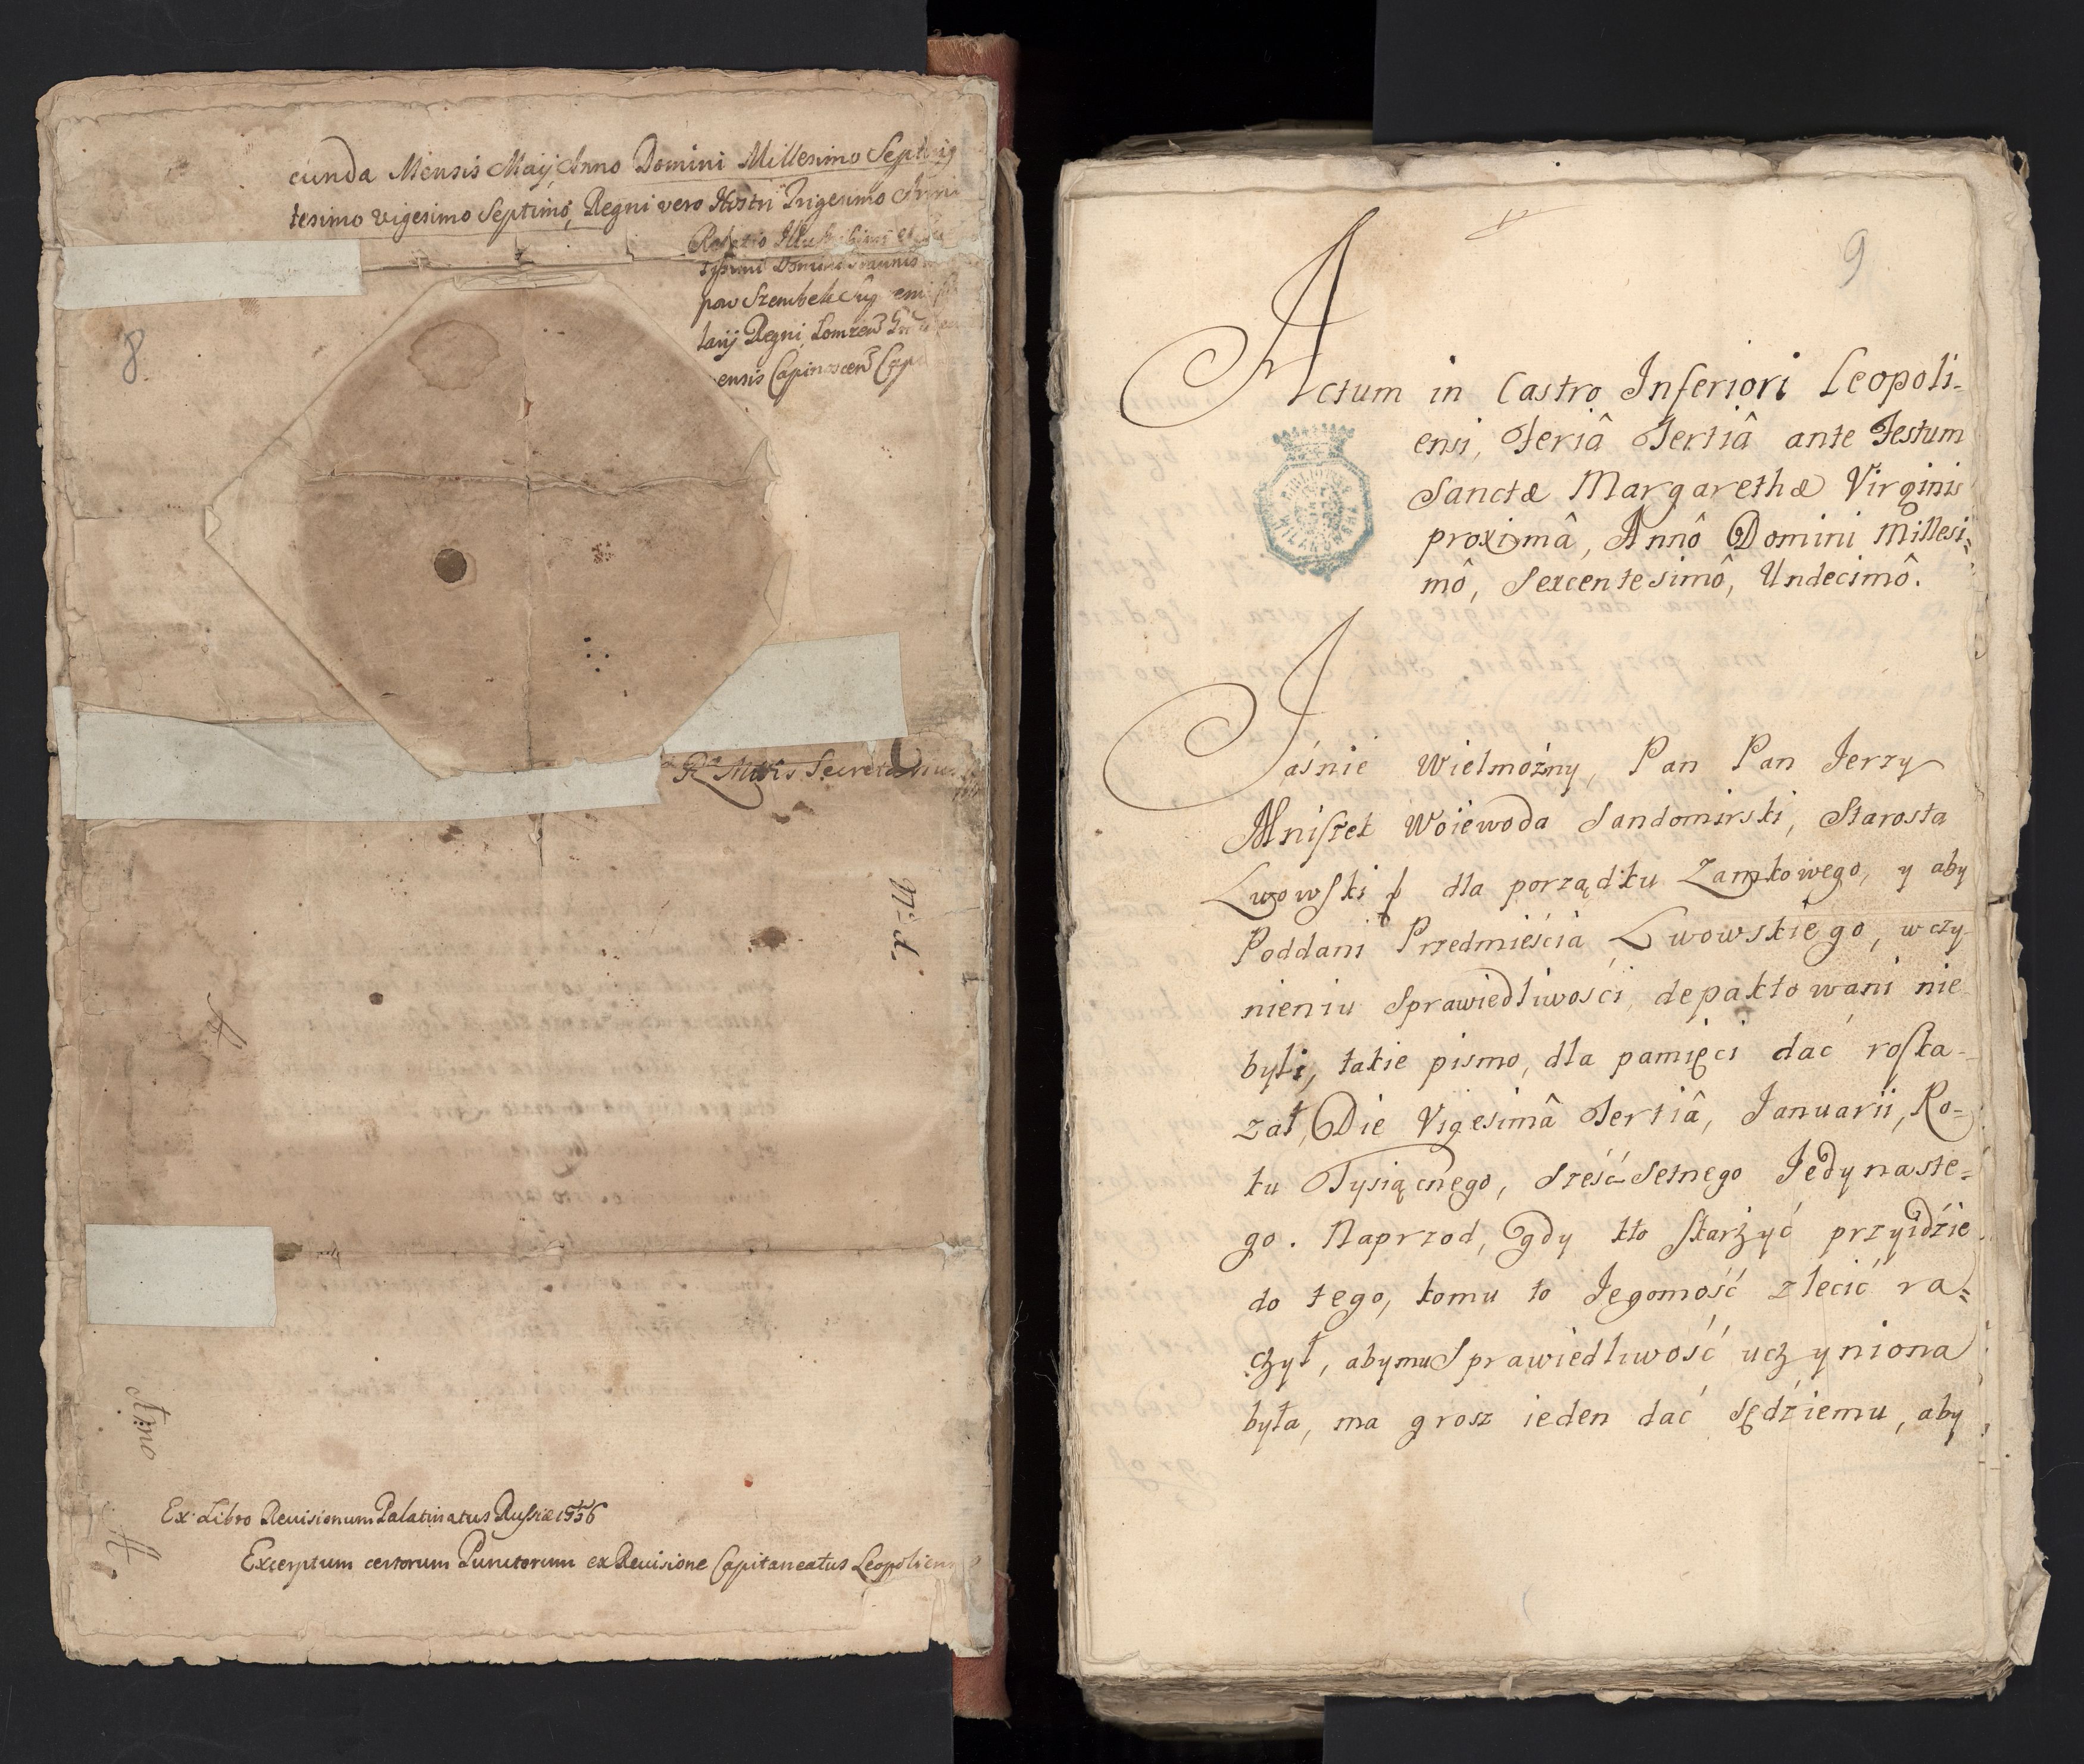 cunda Mensis Maij, Anno Domini Millesimo Septing
tesimo vigesimo Septimo, Regni vero Nostri Trigesimo Anni
Relatio
Domini
pow Szembek
tarij Regni, Lomzen
ensis Capinoscen Cap
8.
Rae Mttis Secretarius
N: 1.
Anno
Ex Libro Reuisionum Palatinatus Russiæ 1556
Excerptum certorum Punctorum ex Reuisione Capitaneatus Leopolien
9
Actum in Castro Inferiori Leopoli-
ensi, Feriâ Tertiâ ante Festum
Sanctæ Margarethæ Virginis
proximâ, Annô Domini Millesi=
mô, Sexcentesimô, Undecimô.
BIBLIOTEKA WILANOWSKA
Jaśnie Wielmożny, Pan Pan Jerzy
Mniszek Woiewoda Sandomirski, Starosta
Lwowski dla porządku Zamkowego, y aby
Poddani Przedmieścia Lwowskiego, w czy-
nieniu Sprawiedliwości, depaktowani nie
byli, takie pismo, dla pamięci dać roska-
zał, Die Vigesimâ Tertiâ, Januarii, Ro-
ku Tysiącnego, Sześć Setnego Jedynaste=
go. Naprzod, gdy kto skarżyć przyidzie
do tego, komu to Jegomość zlecić ra=
czył, aby mu Sprawiedliwość uczyniona
była, ma grosz ieden dać Sędziemu, aby